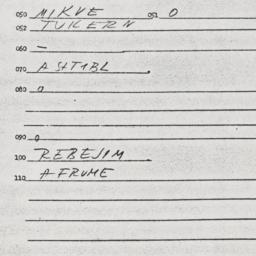 050 MIKVE 051 0
052 TUKERN
060 —
070 A SHTIBL
080 0
090 0
100 REBEJIM
110 A FRUME